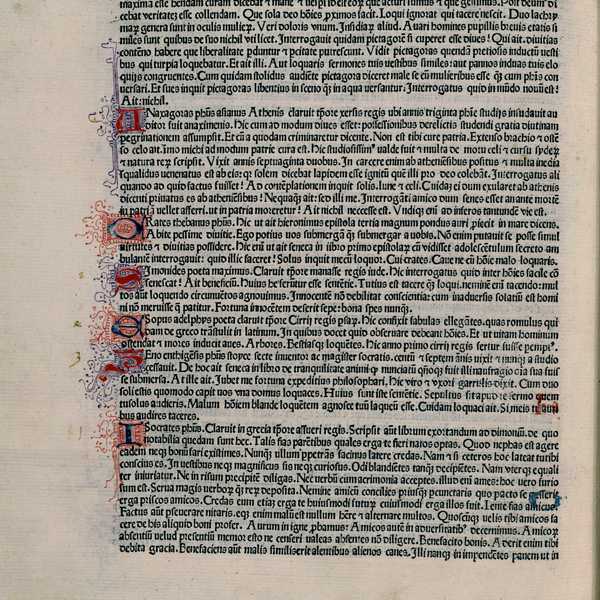 cebat veritates esse collendam. Que sola deo hōies p̄ximos facit. Loqui ignorat qui tacere nescit. Duo lachry
mar genera sunt in oculis mulier. Veri doloris vnum. Insidiar aliud. Auari homines pupillis breuis etatis si
miles sunt quibus de suo nichil vtilicet. Interrogauit quidam pictagorā si cuperet esse diues! Qui ait. diuitias
contēno habere que liberalitate pduntur & pcitate putrescunt. Vidit pictagoras quendā pretiosis inductū vesti
bus qui turpia loquebatur. Et ait illi. Aut loquaris sermones tuis vestibus similes: aut pannos induas tuis elo
quijs congruentes. Cum quidam stolidus audiente pictagora diceret male se cū mulieribus esse q̄ cum ph̄is con
uersari. Et sues inquit pictagoras libentius in sceno q̄ in aqua versantur. Interrogatus quid in mūdo nouū esset!
Ait: nichil.
ANaxagoras ph̄us asianus Athenis claruit tp̄ore xersis regis ubi annis triginta ph̄ie studijs insudauit au
ditor fuit anaximenis. Hic cum ad modum diues esset: possessionibus derelictis studendi gratia diutinam
peregrinationem assumpsit. Et cū a quodam criminaretur dicente. Non est tibi cure patria. Extenso brachio & oste
so celo ait. īmo michi ad modum patrie cura est. Hic studiosissim' valde fuit & multa de motu celi & cursu syderz
& natura rez scripsit. Vixit annis septuaginta duobus. In carcere enim ab atheniēsibus positus & multa inedia
squalidus venenatus est ab eis: q solem dicebat lapidem esse ignitū quē illi pro deo colebāt. Interrogatus ali
quando ad quid factus fuisset! Ad cōtemplationem inquit solis. lune & celi. Cuidaz ei dum exularet ab athenis
dicenti priuatus es ab atheniēsibus! Nequāq̄ ait: sed illi me. Interrogāti amico dum senes esset an ante mortē
in patriā vellet afferri. ut in patria moreretur! Ait nichil necesse est. Vndiq̄ eni ad inferos tantundē vie est.
CRates thebanus ph̄us. Hic ut ait hieronimus epistola tertia magnum pondus auri piecit in mare dicens.
Abite pessime diuitie. Ego potius uos submergā q̄ submergar a uobis. Nō enim putauit se posse simul
virtutes & diuitias possidere. Hic enī ut ait seneca in libro primo epistolar cū vidisset adolescētulū secreto am
bulantē interrogauit: quid illic faceret! Solus inquit mecū loquor. Cui crates. Caue ne cū hōie malo loquaris.
SImonides poeta maximus. Claruit tp̄ore manasse regis iude. Hic interrogatus quid inter hōies facile cō
senescat! Ait beneficiū. Huius he ferūtur esse sentētie. Tutius est tacere q̄ loqui. neminē eni tacendo: mul
tos aut loquendo circumuētos agnouimus. Innocentē nō debilitat conscientia: cum inaduersis solatiū est homi
ni nō meruisse q̄ patitur. Fortuna innocētem deserit sepe: bona spes nunq̄.
ESopus adelphus poeta claruit tp̄ore Cirri regis psaz. Hic confixit fabulas ellegātes. quas romulus qui
dam de greco trāstulit in latinum. In quibus docet quid obseruare debeāt hōies. Et ut uitam hominum
ostendat & mores inducit aues. Arbores. Bestiasq̄ loquētes. Hic anno primo cirri regis fertur fuisse pempt'.
ZEno enthigēsis ph̄us stoyce secte inuentor ac magister socratis. centū & septem ānis vixit & nunq̄ a studio
cessauit. De hoc ait seneca in libro de tranquilitate animi q nunciatū qn̄q ei fuit illi naufragio oīa sua fuis
se submersa. At ille ait. Jubet me fortuna expeditius philosophari. Hic viro & vxori garrulis dixit. Cum duo
soli estis quomodo capit uos vna domus loquaces. Huius sunt iste sentētie. Sepultus sit apud te sermo quem
tu solus audieris. Malum hōiem blande loquētem agnosce tuū laqueū esse. Cuidam loquaci ait. Si meis tribus auribus
bus audires taceres.
ISocrates ph̄us. Claruit in grecia tp̄ore assueri regis. Scripsit aut librum exortandum ad dimoniū. de quo
notabilia quedam sunt hec. Talis sias parētibus quales erga te fieri natos optas. Quod nephas est agere
eadem neq̄ bonū fari existimes. Nunq̄ ullum p̄petrans facinus latere credas. Nam & si ceteros hoc lateat tu tibi
conscius es. In uestibus neq̄ magnificus sis neq̄ curiosus. Odi blandiētes tanq̄ decipiētes. Nam vterq̄ equali
ter iniuriatur. Ne in risum precipitē diligas. Nec verbū cum acerimonia acceptes. illud enī amēs: hoc vero furio
sum est. Serua magis verborz q̄ rez deposita. Nemine amicū concilies priusq̄ pcunctaris quo pacto se gesserit
erga priscos amicos. Credas eum etiaz erga te huiusmodi futurz cuiusmodi erga illos fuit. Lente fias amicus.
Factus aut pseuerare nitaris. eq enim malū est nullum habere & alternare multos. Quoscūq̄ uelis tibi amicos fa
cere de his aliquid boni profer. Aurum in igne phamus: Amicos autē in aduersitatib' decernimus. Amicorz
absentiū velud presentiū memor esto ne censeri valeas absentes nō diligere. Benefacito bonis. Aderit enim tibi
debita gracia. Benefaciens aut malis similiserit alentibus alienos canes. Illi nanq̄ in impendētes panem ut in